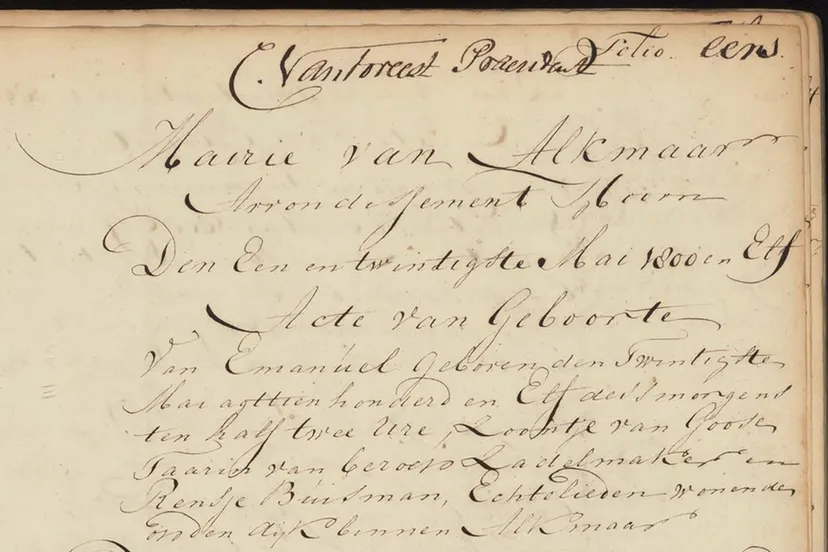 C. Vanforeest President Folio eers
Mairie van Alkmaar
Arrondissement Hoorn
Den Een en twintigste Mai 1800 en Elf
Acte van Geboorte
Van Emanuel geboren den Twintigste
Mai agttien honderd en Elf des smorgens
ten half twee Ure, Zoontje van Goose
Taarin van beroep Zadelmaker en
Rensje Buisman, Echtelieden wonende
op den dijk binnen Alkmaar